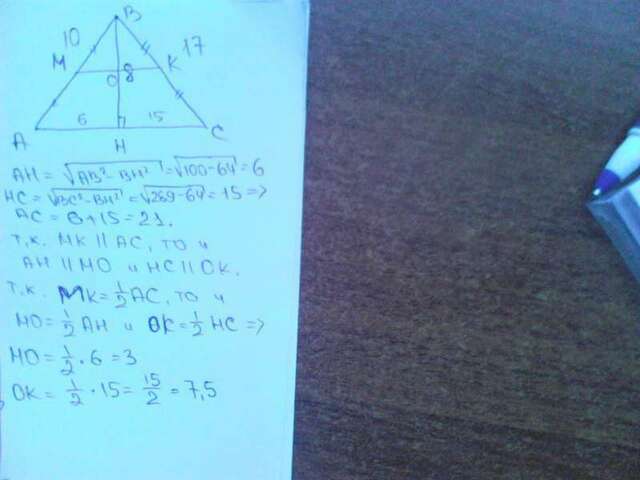 B
10
17
M
K
O
8
6
15
A
H
C
AH = √AB² - BH² = √100-64 = 6
HC = √BC² - BH² = √289-64 = 15 =>
AC = 6+15 = 21.
т.к. MK || AC, то и
AH || MO и HC || OK.
т.к. MK = 1/2 AC, то и
MO = 1/2 AH и OK = 1/2 HC =>
MO = 1/2 · 6 = 3
OK = 1/2 · 15 = 15/2 = 7,5